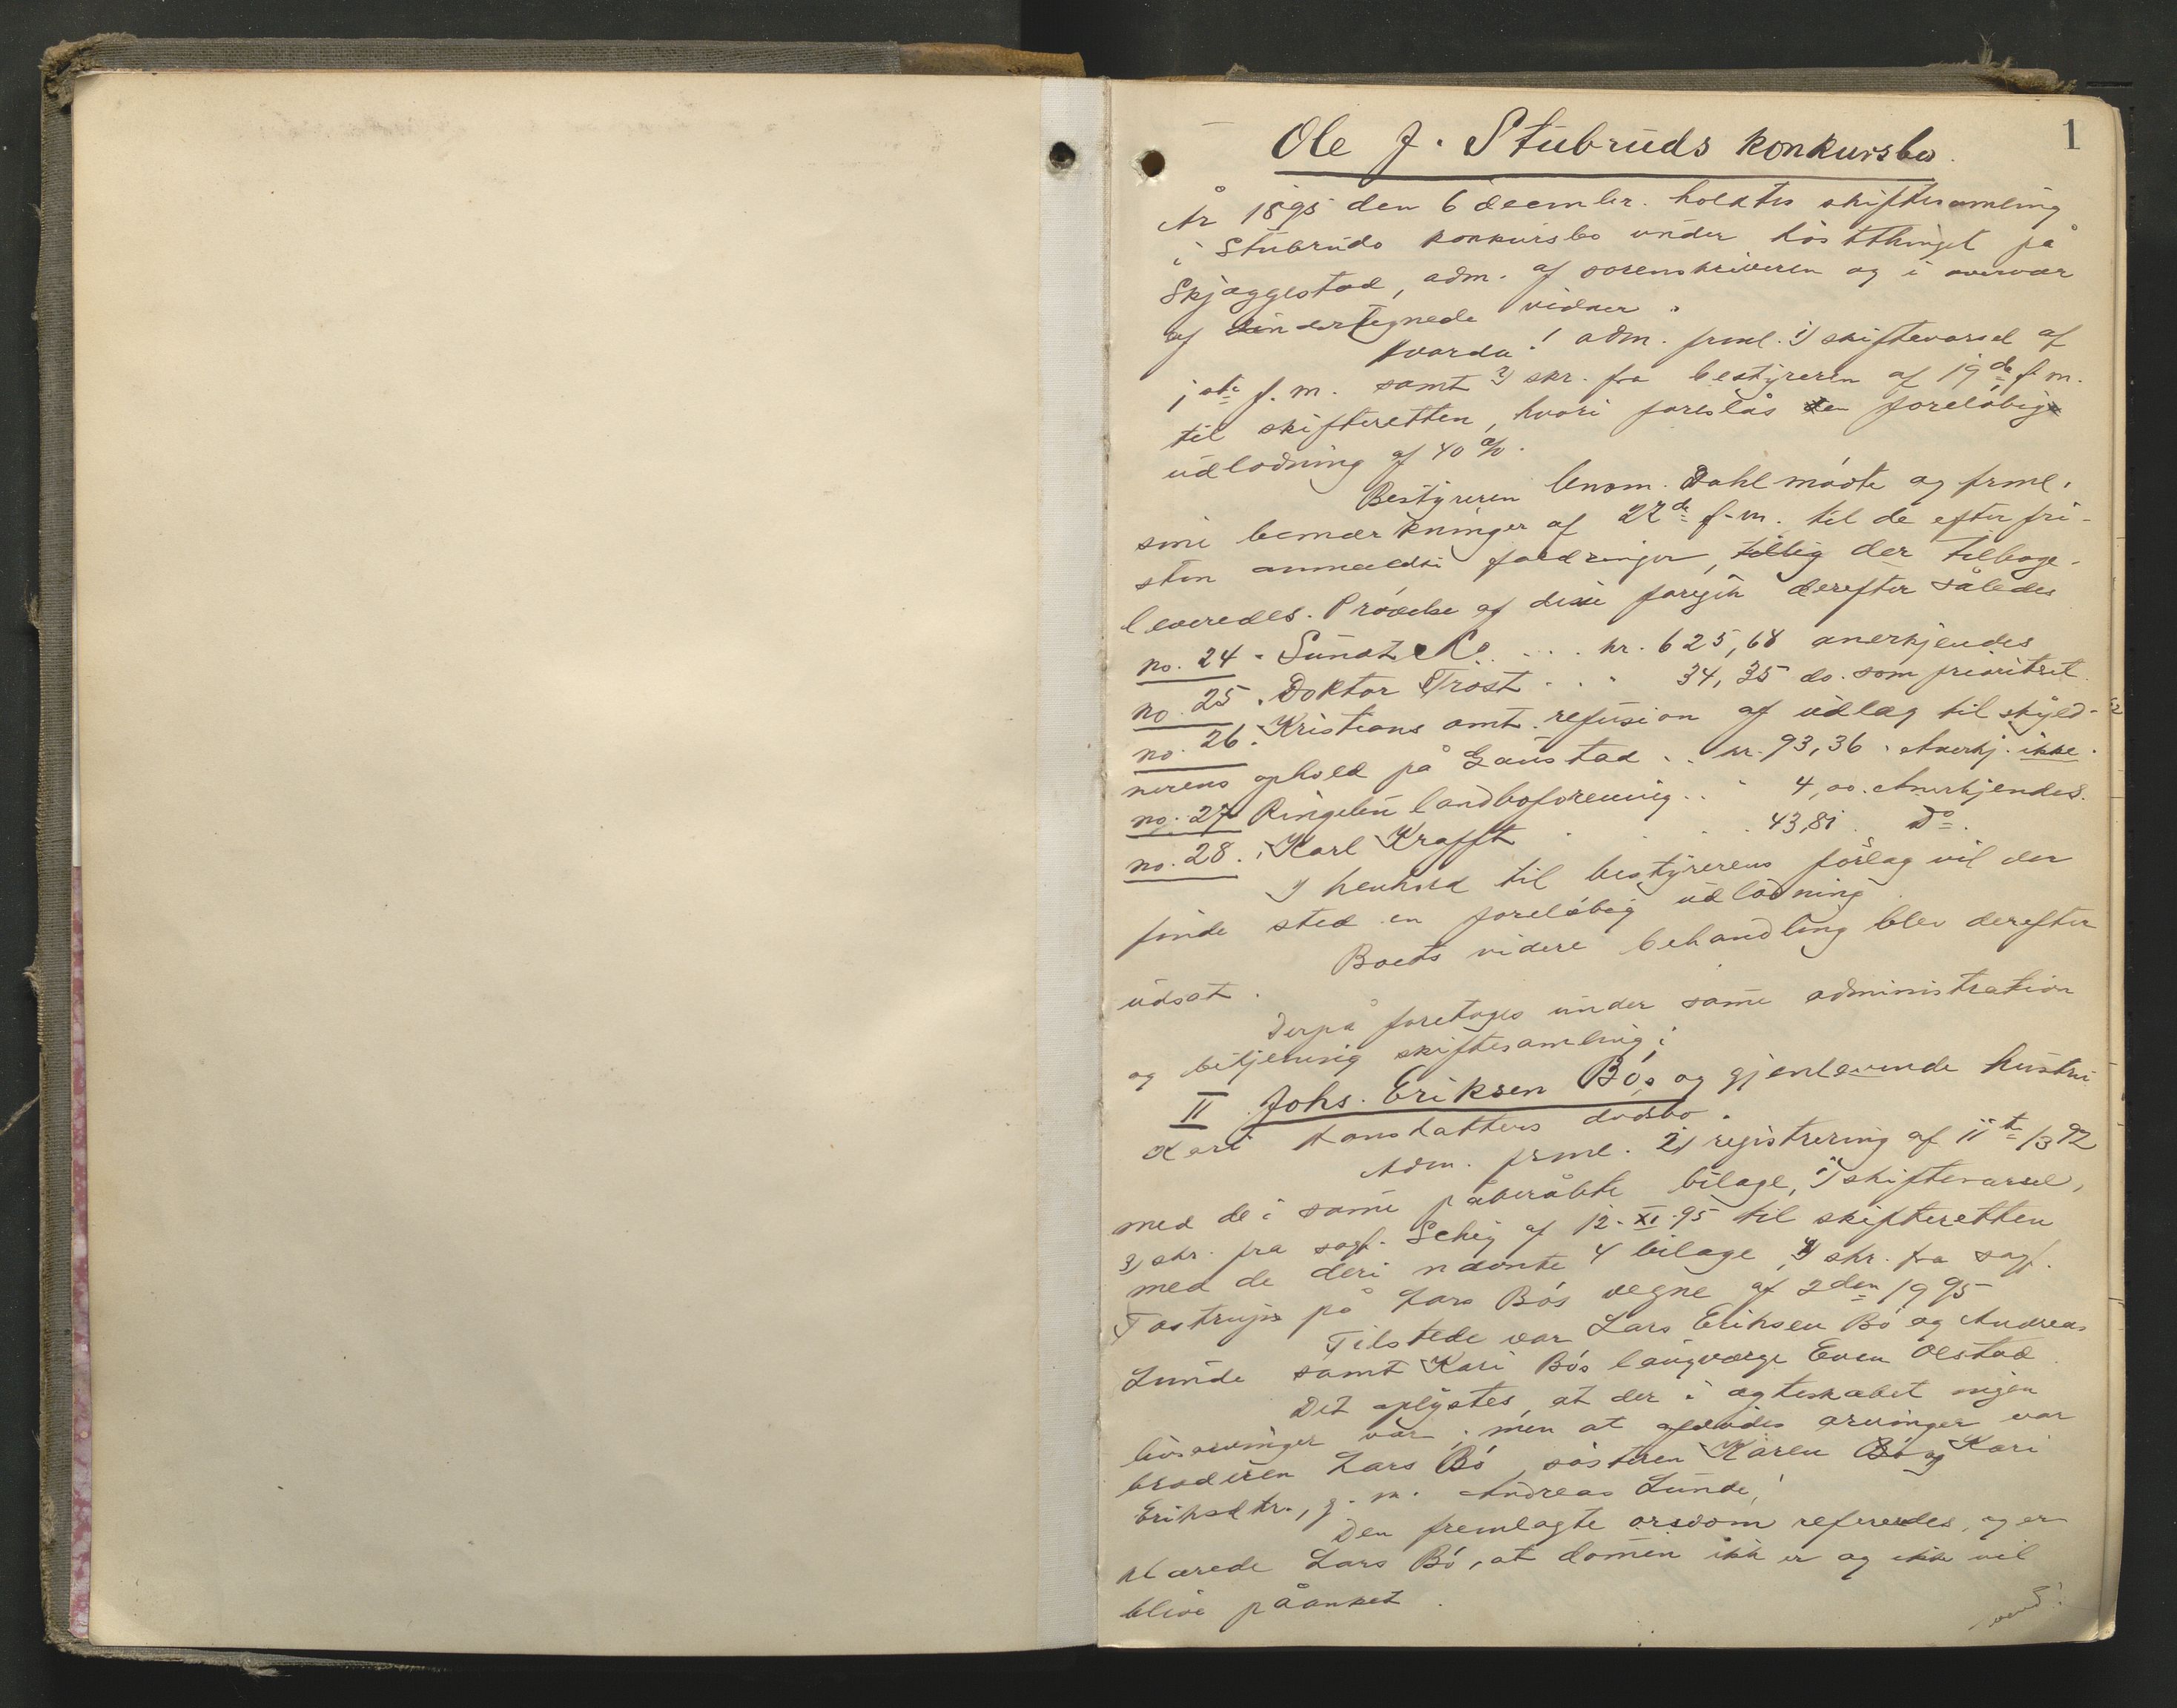 1
Ole J. Stubruds konkursbo.
År 1895 den 6 decembr. holdtes skiftesamling
i Stubruds konkursbo under høstthinget på
Skjæggestad, adm. af sorenskriveren og i overvær
af undertegnede vidner.
Hvorda: adm. frml. 1) skiftevarsel af
1ste f. m. samt 2) skr. fra bestyreren af 19de f. m.
til skifteretten, hvori foreslås en foreløbig
udlodning af 40 %.
Bestyreren Dahl mødte og frml.
sine bemærkninger af 22de f. m. til de efter fri-
sten anmeldte fordringer, der tilbage-
leveredes. Prøvelse af disse foregik derefter således
no. 24. Sundt & Co. . . . kr. 625,68 anerkjendes
no. 25. Doktor Trost . . " 34,35 do. som prioritet.
no. 26. Kristians amt. refusion af udlæg til skyld-
nerens ophold på Gaustad . . kr. 93,36. Anerkj. ikke.
no. 27 Ringebu landboforening . . " 4,00. Anerkjendes.
no. 28. Karl Krafft . . . . 43,81. Do.
I henhold til bestyrerens forslag vil der
finde sted en foreløbig udlodning.
Boets videre behandling blev derefter
udsat.
Derpå foretoges under same administration
og betjening skiftesamling i
II Johs. Eriksen Bøs og gjenlevende hustru
Kari Hansdatters dødsbo.
Adm. frml. 2) registrering af 11te/3 92
med de i same påberåbte bilage, 1) skiftevarsel,
3) skr. fra sagf. af 12. XI. 95 til skifteretten
med de deri nævnte 4 bilage, 4) skr. fra sagf.
Tostrup på Lars Bøs vegne af 2den
Tilstede var Lars Eriksen Bø og Andreas
Lunde samt Kari Bøs laugværge Even Olstad.
Det oplystes, at der i ægteskabet ingen
livsarvinger var; men at afdødes arvinger var
broderen Lars Bø, søsteren Karen Bø og Kari
Eriksdtr., g. m. Andreas Lunde.
Den fremlagte refereredes, og er-
klærede Lars Bø, at domen ikke er og ikke vil
blive påanket.
vend!